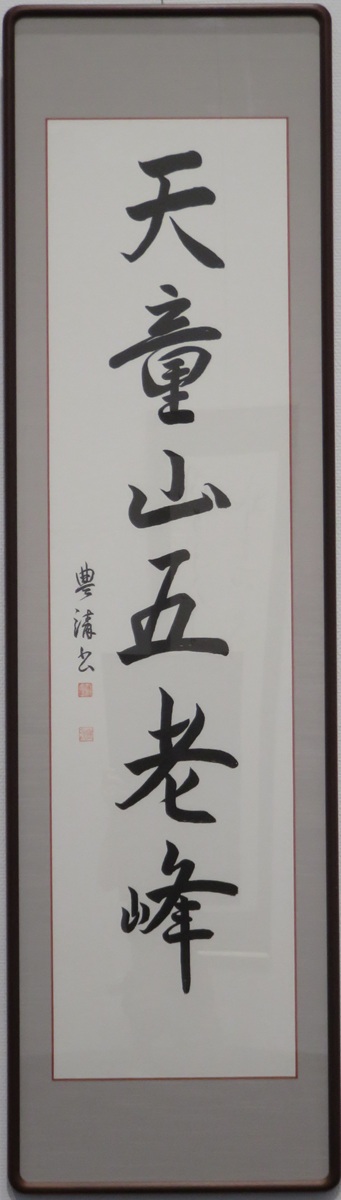 天童山五老峰
豊清書